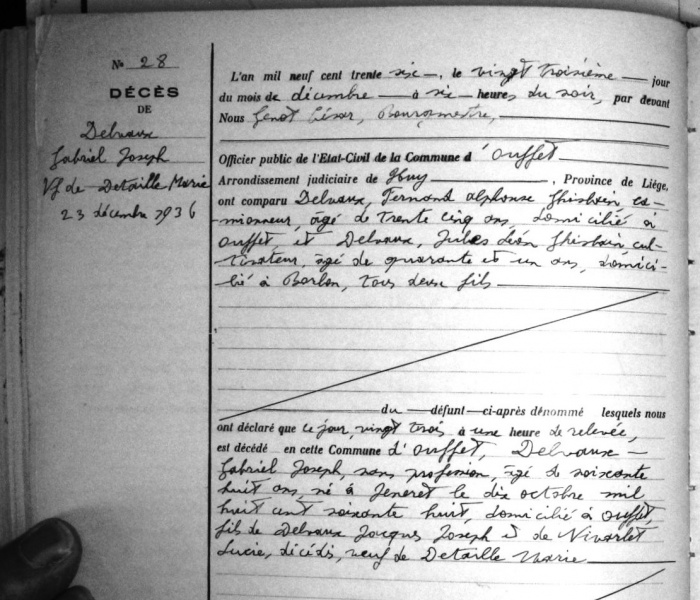 N° 28
DÉCÈS
DE
Delvaux
Gabriel Joseph
Vf de Detaille Marie
23 décembre 1936
L'an mil neuf cent trente six, le vingt troisième jour
du mois de décembre à six heures du soir, par devant
Nous Genot César, Bourgmestre,
Officier public de l'Etat-Civil de la Commune d'Ouffet
Arrondissement judiciaire de Huy, Province de Liége,
ont comparu Delvaux, Fernand Alphonse Ghislain ca-
mionneur, âgé de trente cinq ans, domicilié à
Ouffet, et Delvaux, Jules Léon Ghislain, cul-
tivateur, âgé de quarante et un ans, domici-
lié à Borlon, tous deux fils
du défunt ci-après dénommé lesquels nous
ont déclaré que ce jour, vingt trois à une heure de relevée,
est décédé en cette Commune d'Ouffet, Delvaux
Gabriel Joseph, sans profession, âgé de soixante
huit ans, né à Jeneret le dix octobre mil
huit cent soixante huit, domicilié à Ouffet,
fils de Delvaux Jacques Joseph et de Nivarlet
Lucie, décédés, veuf de Detaille Marie